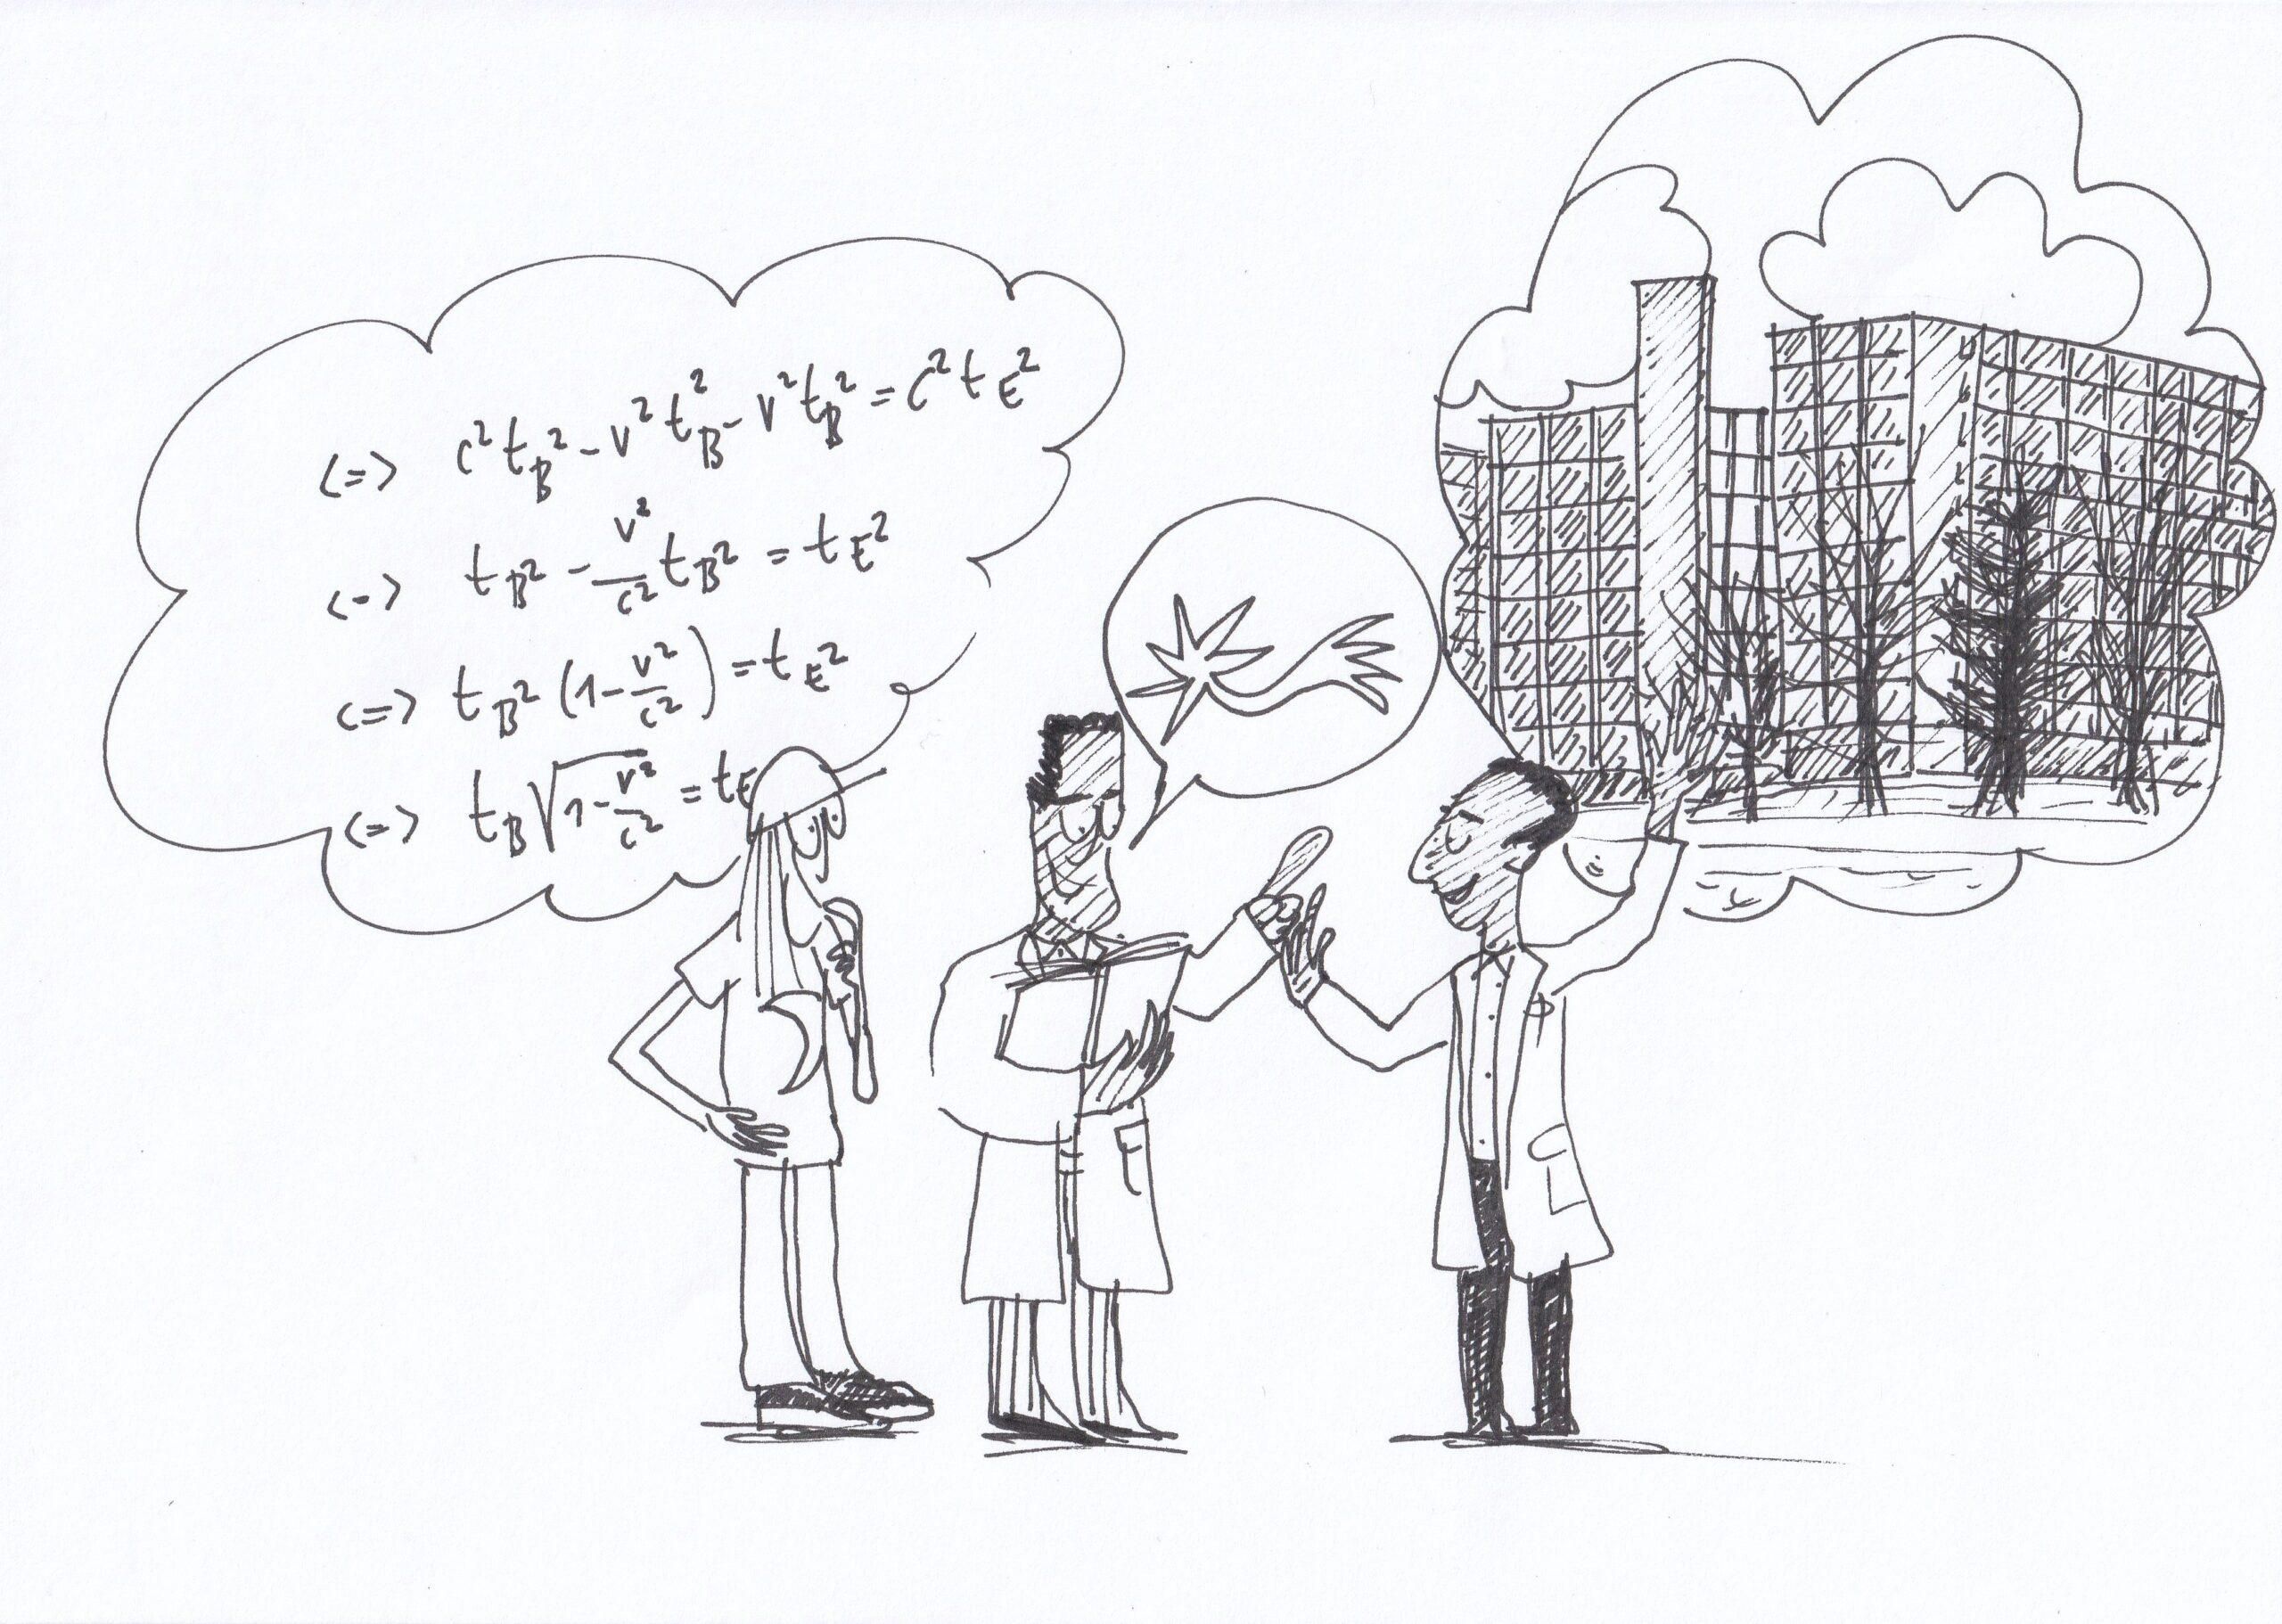 <=> c²t_B² - v²t_B² - v²t_B² = c²t_E²
<-> t_B² - v²/c² t_B² = t_E²
<=> t_B² (1 - v²/c²) = t_E²
<=> t_B √(1 - v²/c²) = t_E